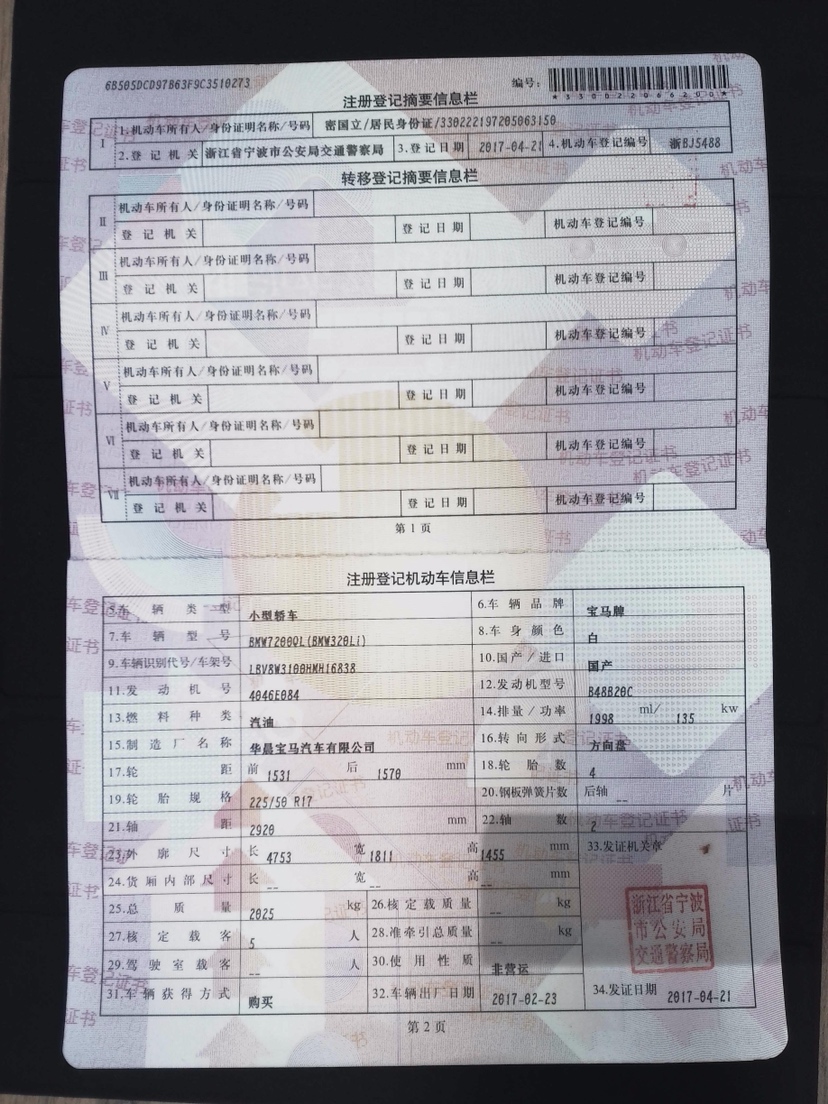 6B505DCD97B63F9C3510273
编号：
*330022066200*
注册登记摘要信息栏
I 1.机动车所有人/身份证明名称/号码 密国立/居民身份证/330222197205063150
2.登记机关 浙江省宁波市公安局交通警察局 3.登记日期 2017-04-21 4.机动车登记编号 浙BJ5488
转移登记摘要信息栏
II 机动车所有人/身份证明名称/号码
登记机关 登记日期 机动车登记编号
III 机动车所有人/身份证明名称/号码
登记机关 登记日期 机动车登记编号
IV 机动车所有人/身份证明名称/号码
登记机关 登记日期 机动车登记编号
V 机动车所有人/身份证明名称/号码
登记机关 登记日期 机动车登记编号
VI 机动车所有人/身份证明名称/号码
登记机关 登记日期 机动车登记编号
VII 机动车所有人/身份证明名称/号码
登记机关 登记日期 机动车登记编号
第1页
注册登记机动车信息栏
5.车辆类型 小型轿车 6.车辆品牌 宝马牌
7.车辆型号 BMW7200QL(BMW320Li) 8.车身颜色 白
9.车辆识别代号/车架号 LBV8W3100HMH16838 10.国产/进口 国产
11.发动机号 4046E084 12.发动机型号 B48B20C
13.燃料种类 汽油 14.排量/功率 1998 ml/ 135 kw
15.制造厂名称 华晨宝马汽车有限公司 16.转向形式 方向盘
17.轮距 前 1531 后 1570 mm 18.轮胎数 4
19.轮胎规格 225/50 R17 20.钢板弹簧片数 后轴 -- 片
21.轴距 2920 mm 22.轴数 2
23.外廓尺寸 长 4753 宽 1811 高 1455 mm 33.发证机关章
24.货厢内部尺寸 长 -- 宽 -- 高 -- mm
25.总质量 2025 kg 26.核定载质量 -- kg
27.核定载客 5 人 28.准牵引总质量 -- kg
29.驾驶室载客 -- 人 30.使用性质 非营运
浙江省宁波
市公安局
交通警察局
31.车辆获得方式 购买 32.车辆出厂日期 2017-02-23 34.发证日期 2017-04-21
第2页